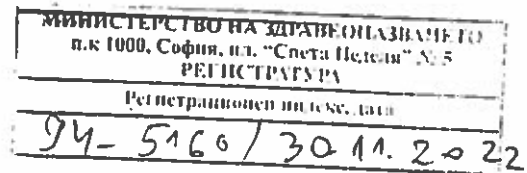 МИНИСТЕРСТВО НА ЗДРАВЕОПАЗВАНЕТО
п.к 1000, София, пл. “Света Неделя” № 5
РЕГИСТРАТУРА
Регистрационен индекс, дата
94-5160/30.11.2022